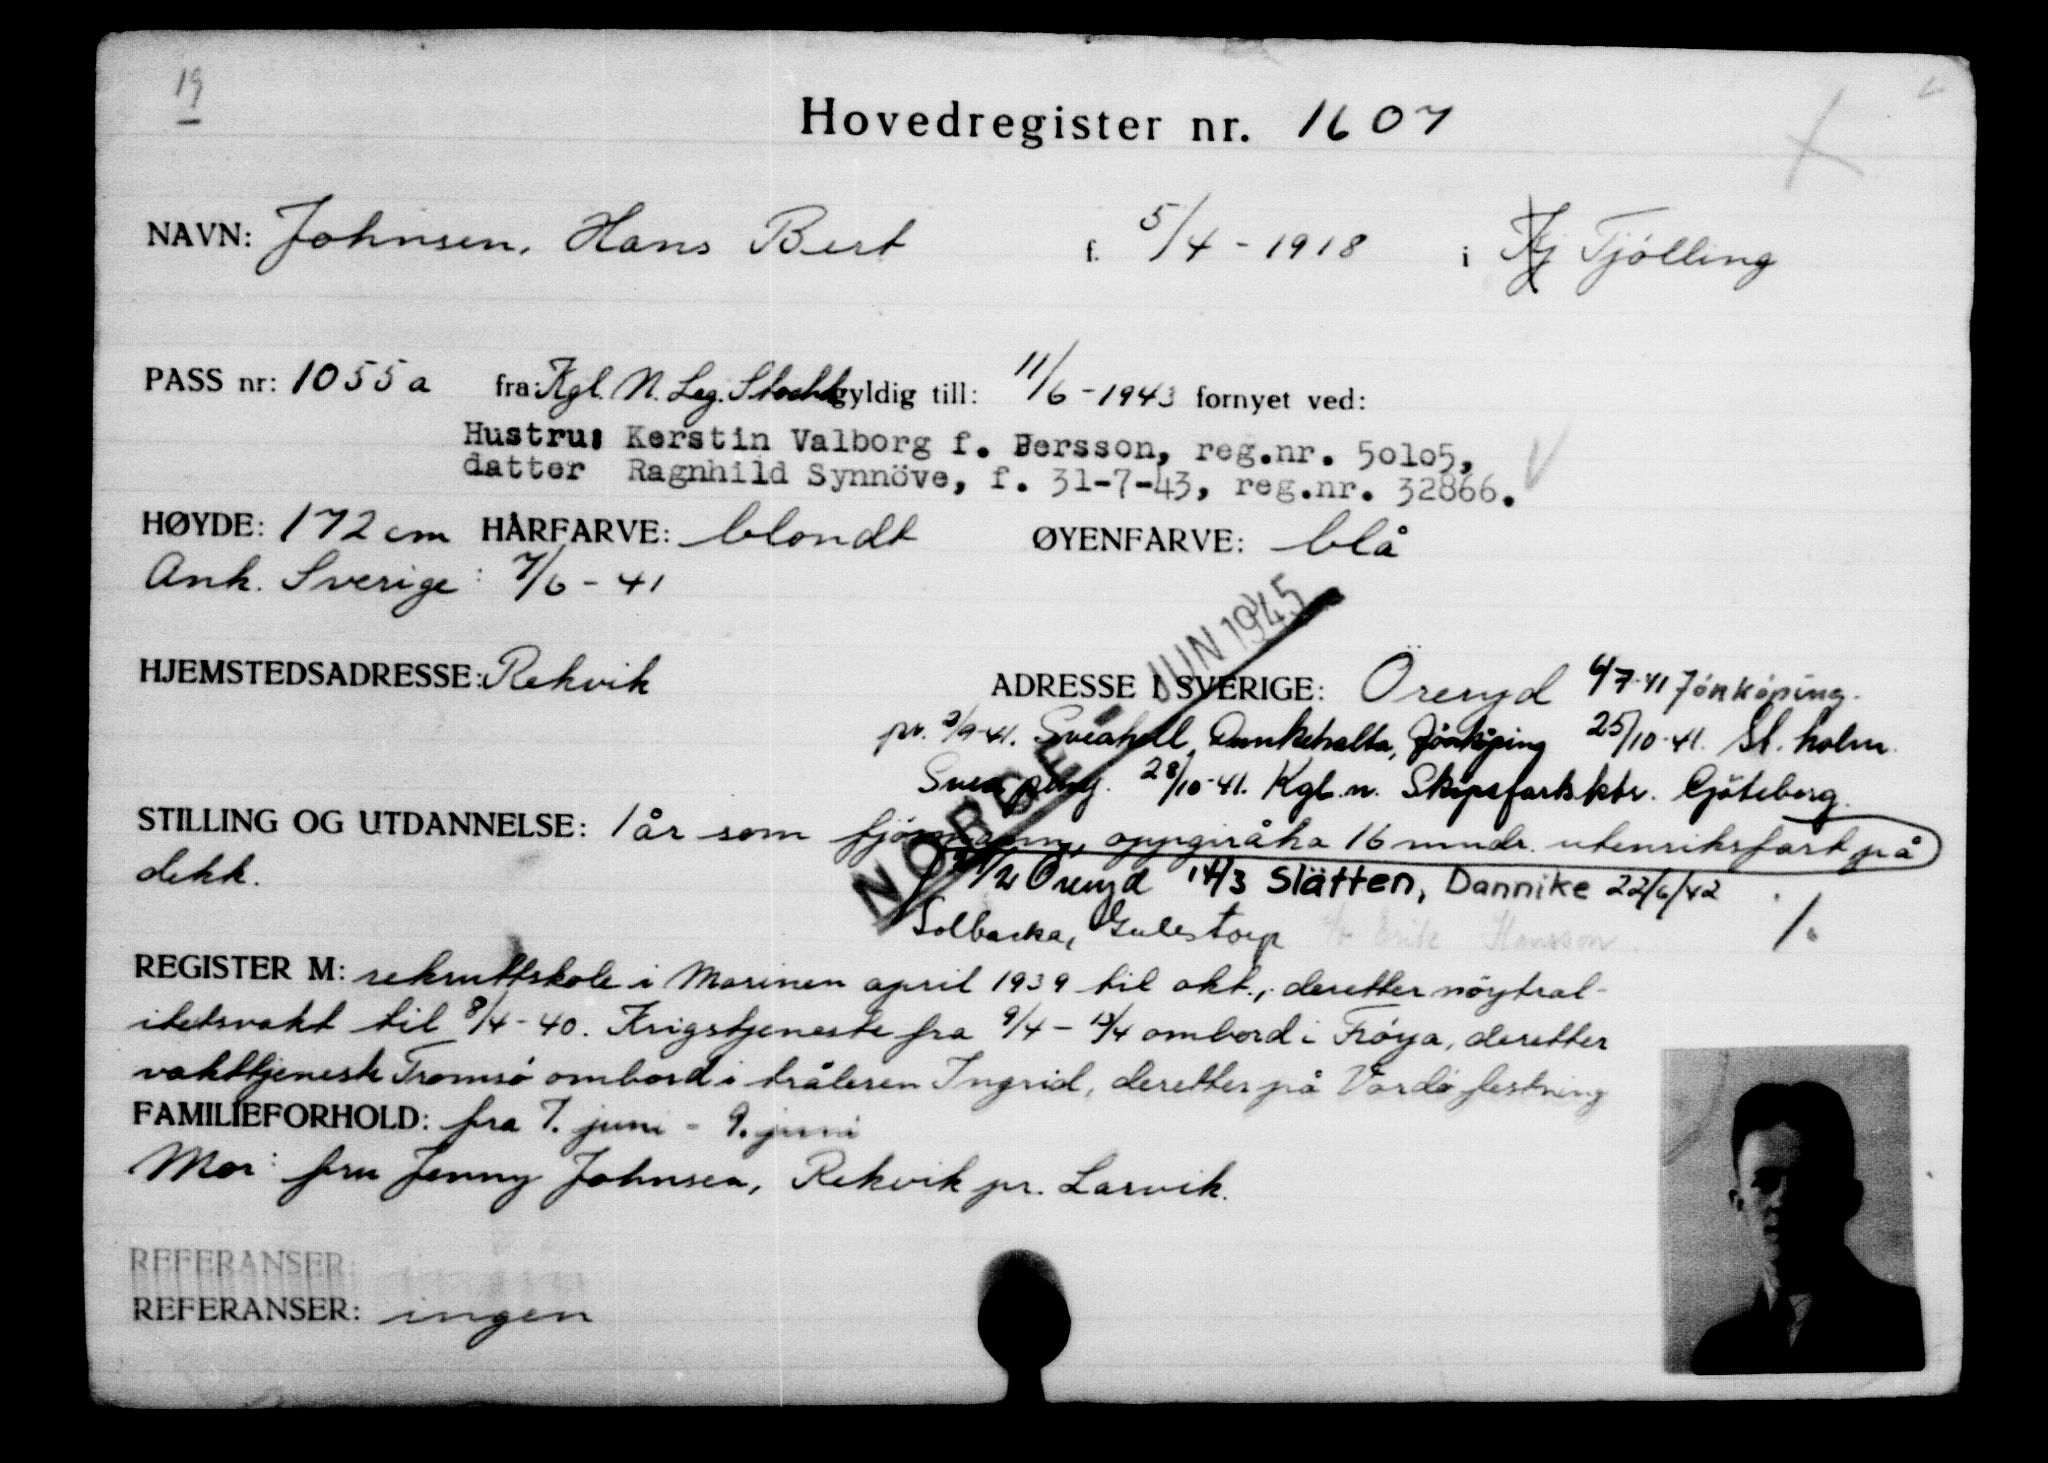 19
Hovedregister nr. 1607
NAVN: Johnsen, Hans Bert f. 5/4 - 1918 i Kj Tjölling
PASS nr: 1055a fra: Kgl. N. Leg. Stockh gyldig till: 11/6 - 1943 fornyet ved:
Hustru: Kerstin Valborg f. Persson, reg.nr. 50105,
datter Ragnhild Synnöve, f. 31-7-43, reg.nr. 32866.
HØYDE: 172 cm HÅRFARVE: blondt ØYENFARVE: blå
Ank. Sverige: 7/6 - 41
JUN 1945
NORGE
HJEMSTEDSADRESSE: Rekvik ADRESSE I SVERIGE: Öreryd 4/7-41 Jönköping.
pr. /9-41. Sveahell, Dunkehalla, Jönköping 25/10-41. St. holm
Svea 28/10-41. Kgl. n. Skipsfartsktr. Göteborg.
STILLING OG UTDANNELSE: 1 år som oppgir åha 16 mndr. utenriksfart på
dekk.
Öreryd 14/3 Slätten, Dannike 22/6/42
Solbacka, Gulestorp Erik Hansson.
REGISTER M: rekruttskole i Marinen april 1939 til okt., deretter nöytral-
itetsvakt til 8/4-40. Krigstjeneste fra 9/4 - 13/4 ombord i Fröya, deretter
vakttjeneste Tromsö ombord i tråleren Ingrid, deretter på Vardö festning
FAMILIEFORHOLD: fra 7. juni - 9. juni
Mor: fru Jenny Johnsen, Rekvik pr. Larvik.
REFERANSER:
REFERANSER: ingen